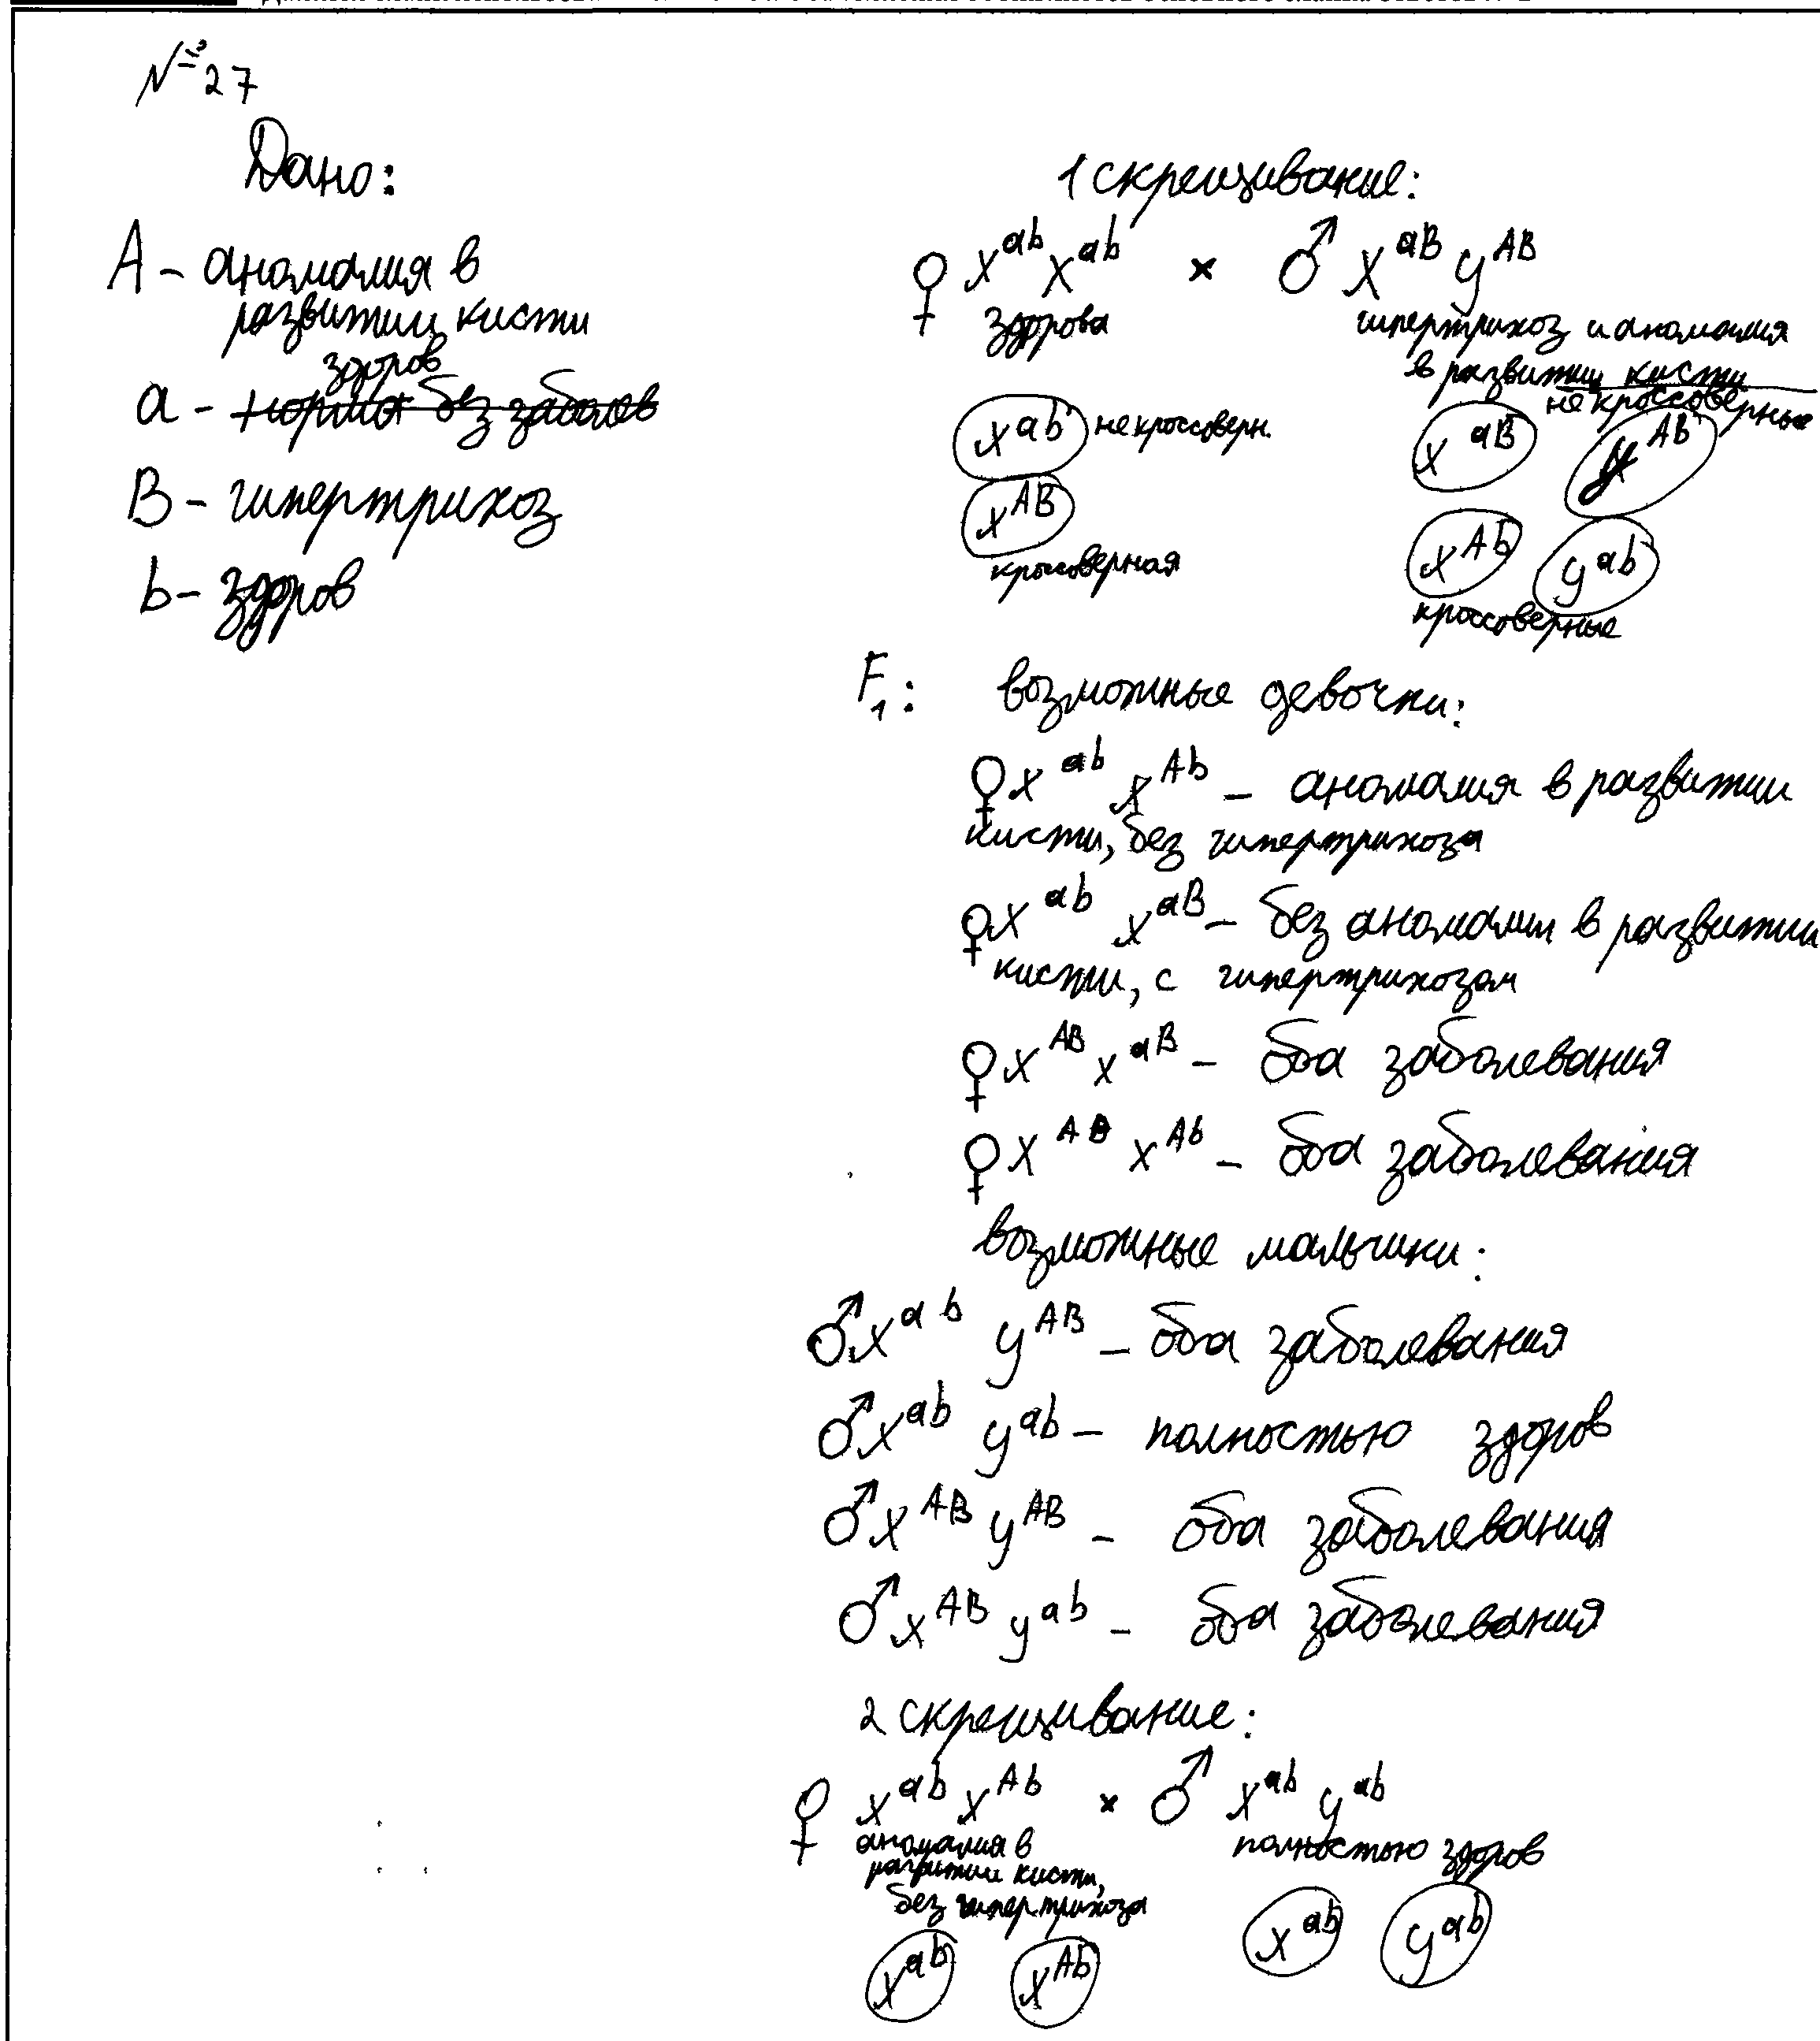 №27
Дано:
А - аномалия в
развитии кисти
здоров
а - норма без заболев
В - гипертрихоз
b - здоров
1 скрещивание:
♀ X^ab X^ab × ♂ X^aB y^AB
здорова гипертрихоз и аномалия
в развитии кисти
X^ab некроссоверн. некроссоверные
X^aB y^AB
X^AB X^Ab y^ab
кроссоверная кроссоверные
F1: возможные девочки:
♀ X^ab X^Ab - аномалия в развитии
кисти, без гипертрихоза
♀ X^ab X^aB - без аномалии в развитии
кисти, с гипертрихозом
♀ X^AB X^aB - оба заболевания
♀ X^AB X^Ab - оба заболевания
возможные мальчики:
♂ X^ab y^AB - оба заболевания
♂ X^ab y^ab - полностью здоров
♂ X^AB y^AB - оба заболевания
♂ X^AB y^ab - оба заболевания
2 скрещивание:
♀ X^ab X^Ab × ♂ X^ab y^ab
аномалия в полностью здоров
развитии кисти,
без гипертрихоза
X^ab X^Ab X^ab y^ab